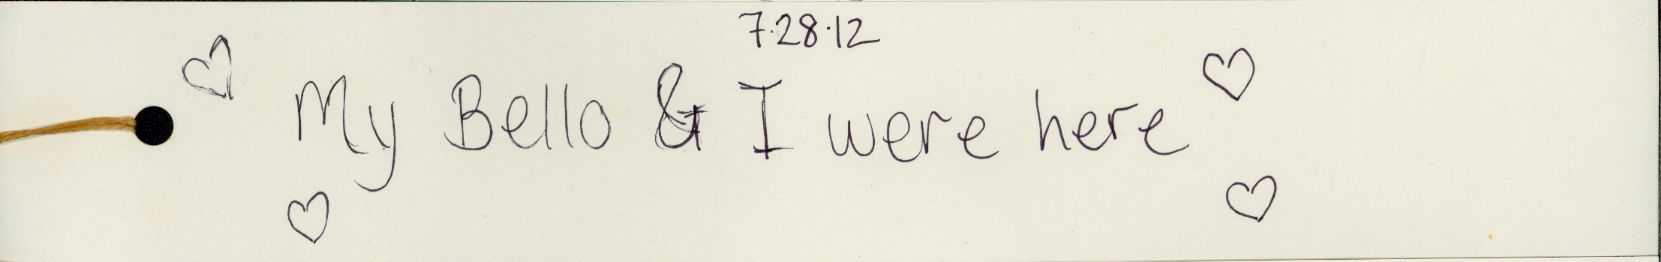 7·28·12
My Bello & I were here